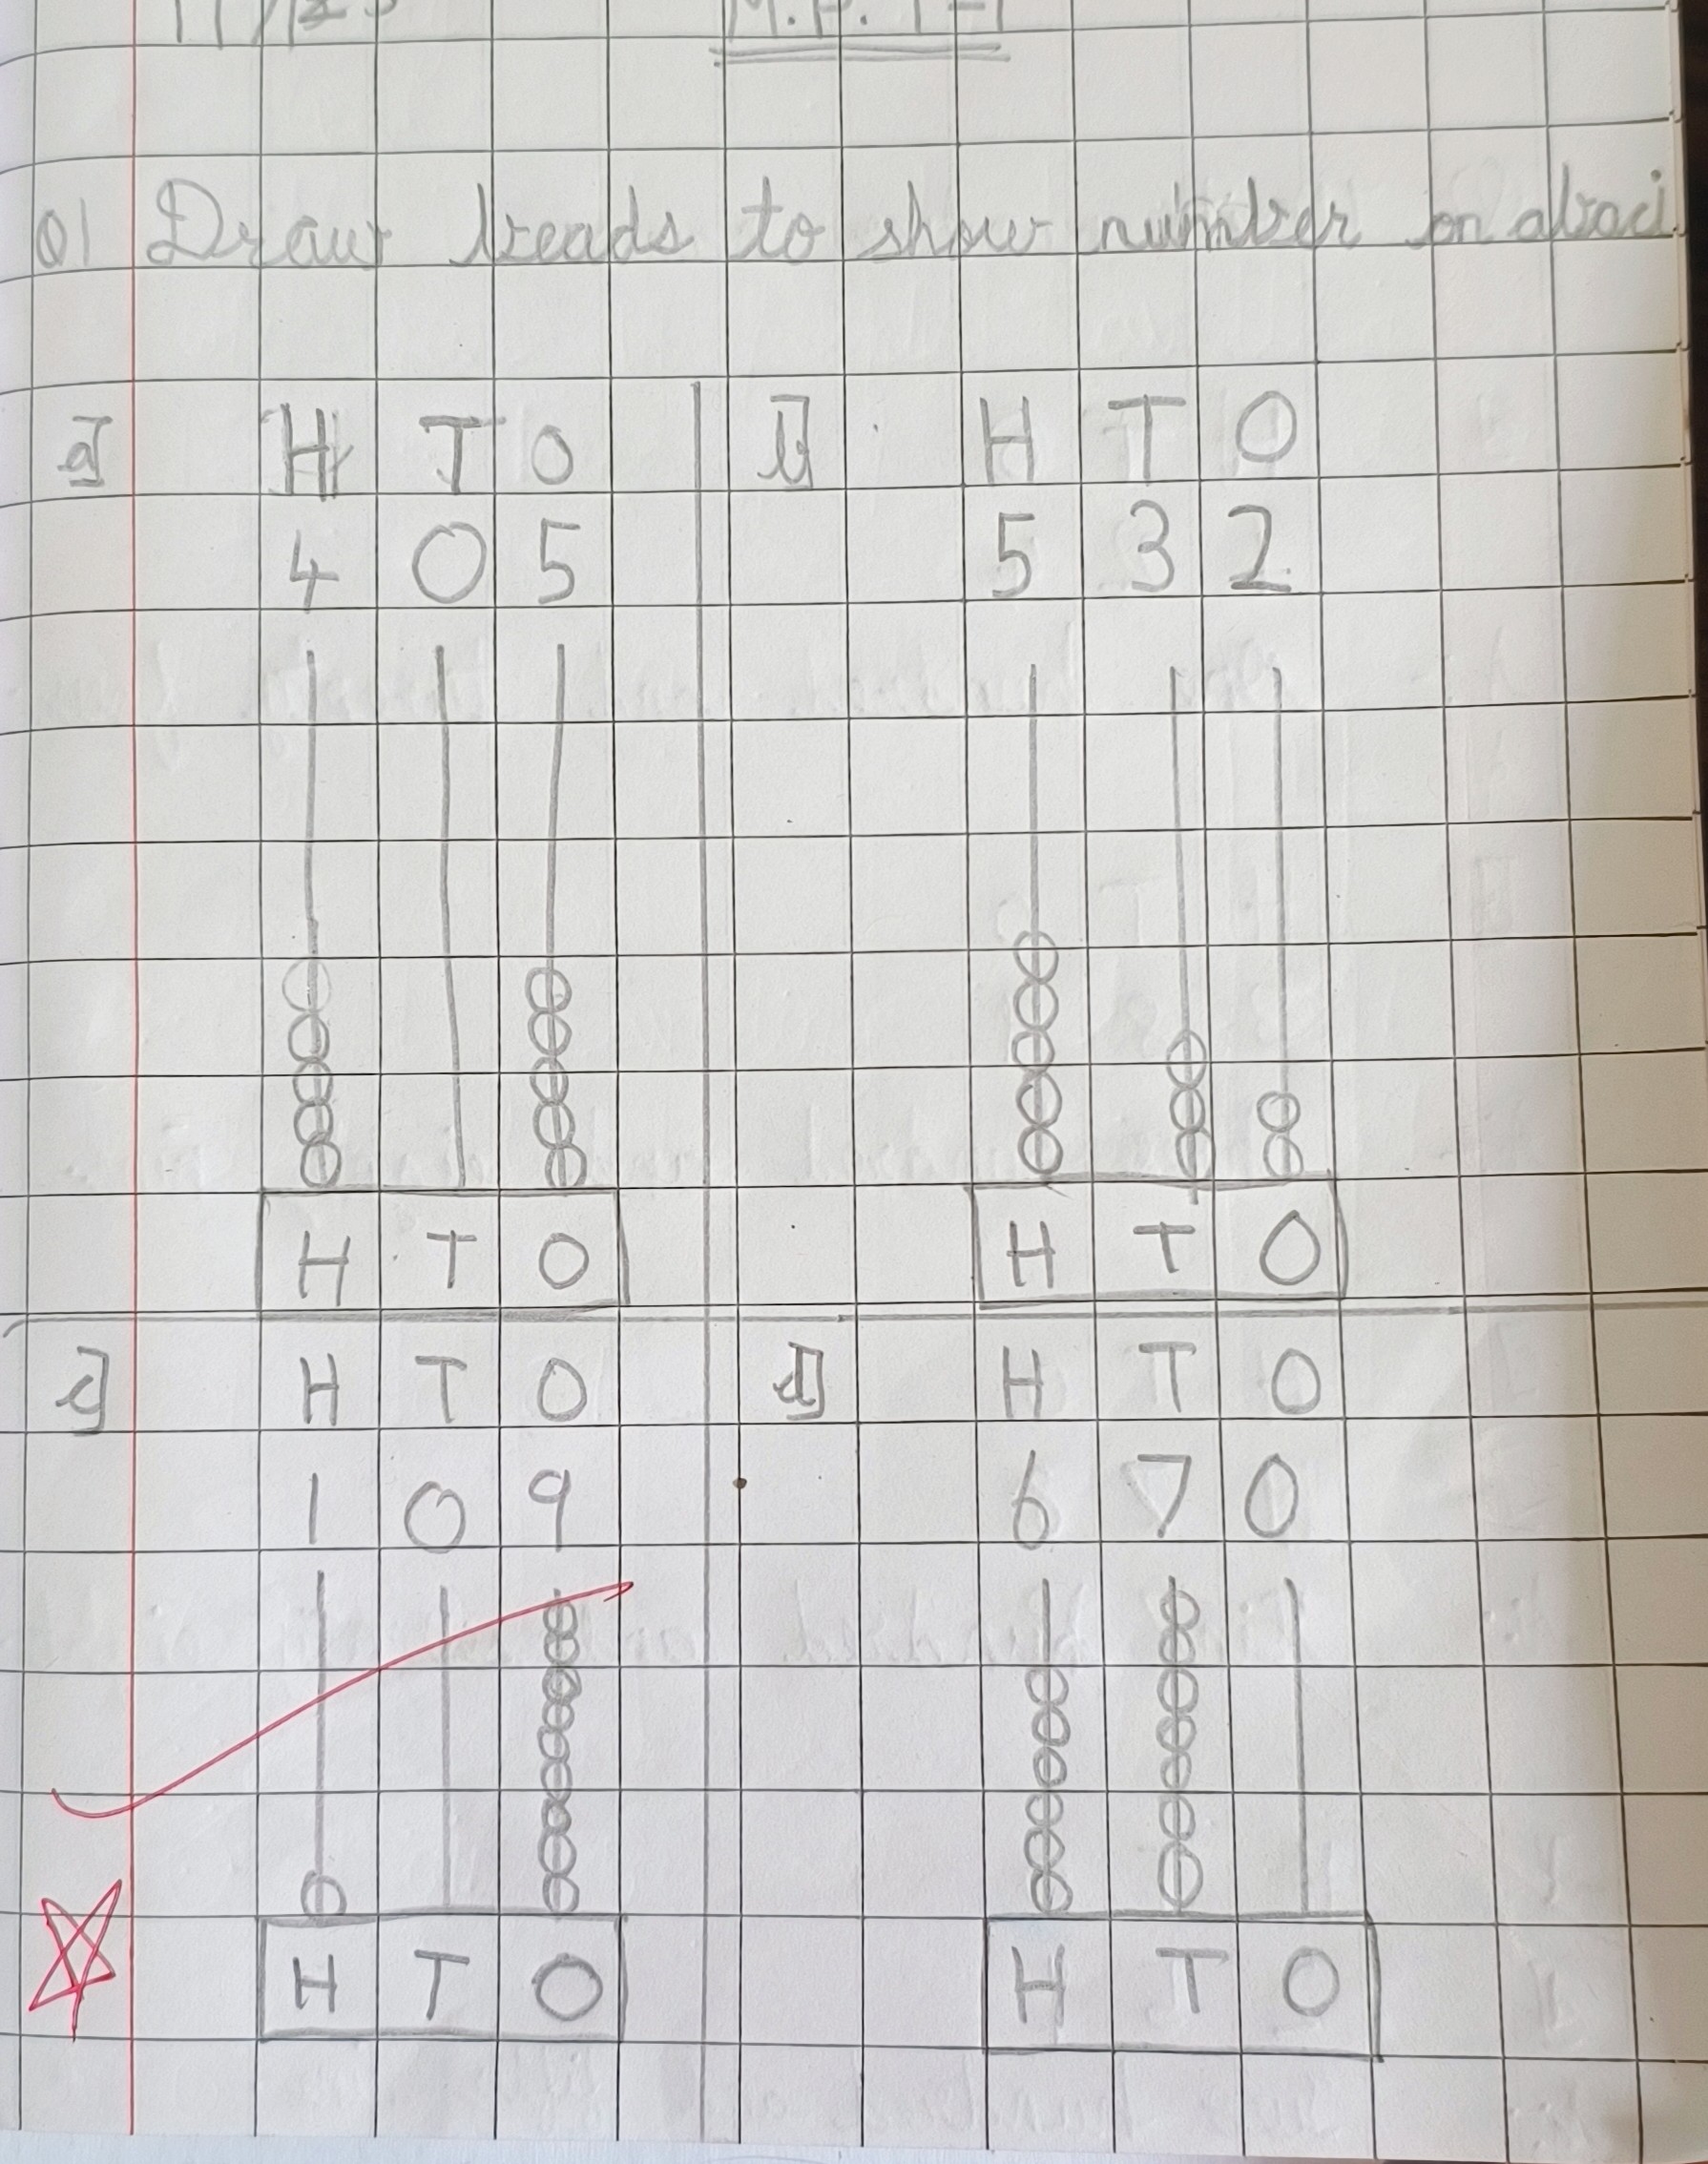 M.P. T-1
Q1 Draw beads to show number on abaci.
a] H T O
4 0 5
b] H T O
5 3 2
H T O
H T O
c] H T O
1 0 9
d] H T O
6 7 0
H T O
H T O